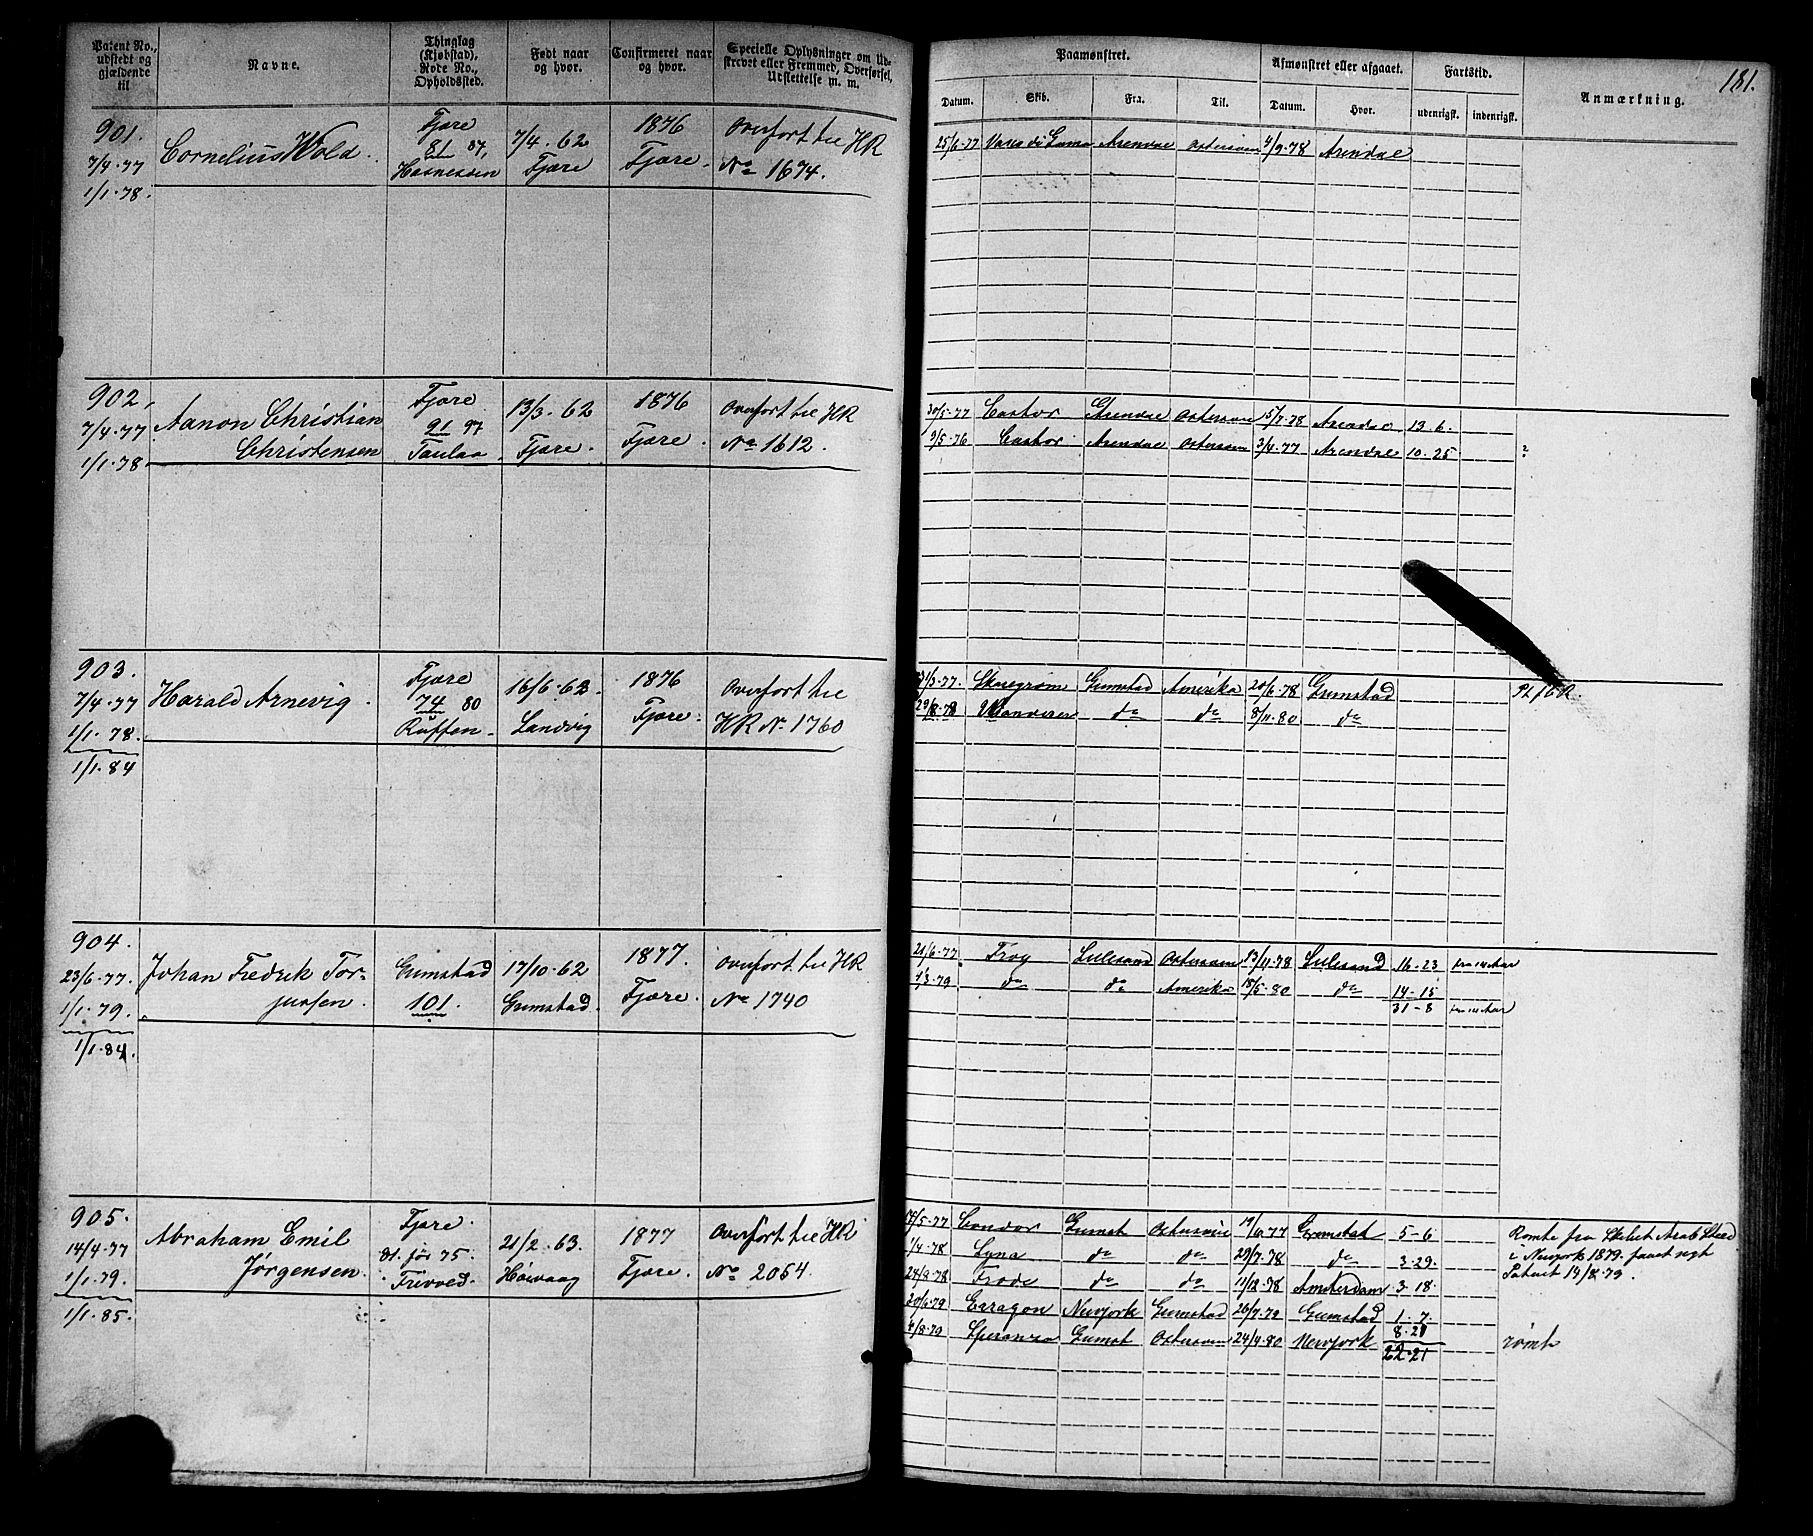 181.
Patent No., udstedt og gjældende til
Navne.
Thinglag (Kjøbstad), Rode No., Opholdssted.
Født naar og hvor.
Confirmeret naar og hvor.
Specielle Oplysninger om Udskrevet eller Fremmed, Overførsel, Udslettelse m. m.
Paamønstret.
Datum. Skib. Fra. Til.
Afmønstret eller afgaaet.
Datum. Hvor.
Fartstid.
udenrigsk. indenrigsk.
Anmærkning.
901.
7/4·77
1/1·78.
Cornelius Wold.
Fjære
81 87,
7/4·62
Fjære
1876
Fjære.
Overført til HR
No 1674.
25/6·77 Vasco di Gama Arendal Østersøen 4/9·78 Arendal
902,
7/4·77
1/1·78
Aanon Christian
Christensen
Fjære
91 97
13/3·62
Fjære.
1876
Fjære.
Overført til HR
No 1612.
30/5·77 Castor Arendal Østersøen 15/7·78 Arendal 13 6.
9/5·76 Castor Arendal Østersøen 3/4·77 Arendal 10·25 ?
903.
7/4·77
1/1·78.
1/1·84
Harald Arnevig
Fjære
74 80
Ruffen.
16/6·62.
Landvig
1876
Fjære.
Overført til
HR No 1760
Grimstad Amerika 20/6·78 Grimstad
do do 8/11·80 do
904.
23/6·77.
1/1·79.
1/1·84.
Johan Fredrik Tor-
jussen.
Grimstad
101.
17/10·62
Grimstad.
1877.
Fjære.
Overført til HR
No 1740
21/6·77. Frog Lillesand Østersøen 13/4·78 Lillesand 16-23
1/3·79 do do Amerika 18/5·80 do 14-15
31-8
905.
14/4·77
1/1·79.
1/1·85.
Abraham Emil
Jørgensen.
Fjære.
81. før 75.
Trivved.
21/2·63.
Høivaag
1877
Fjære.
Overført til HR
No 2054.
18/5·77 Condor Grimst Østersøen 19/6·77 Grimstad 5-6
1/4·78 Lyna do do 29/7·78 do 3·29.
24/9·78 Frode do do 11/12·78 Amsterdam 3·18.
20/6·79 Newjork Grimstad 26/7·79 Grimstad 1·7.
4/8·79 Speranza Grimst Østersøen 24/4·80 Newjork 8·21
22·21
Rømte fra Skibet
i Newjork 1879. faaet nyt
Patent 19/8·79.
rømte